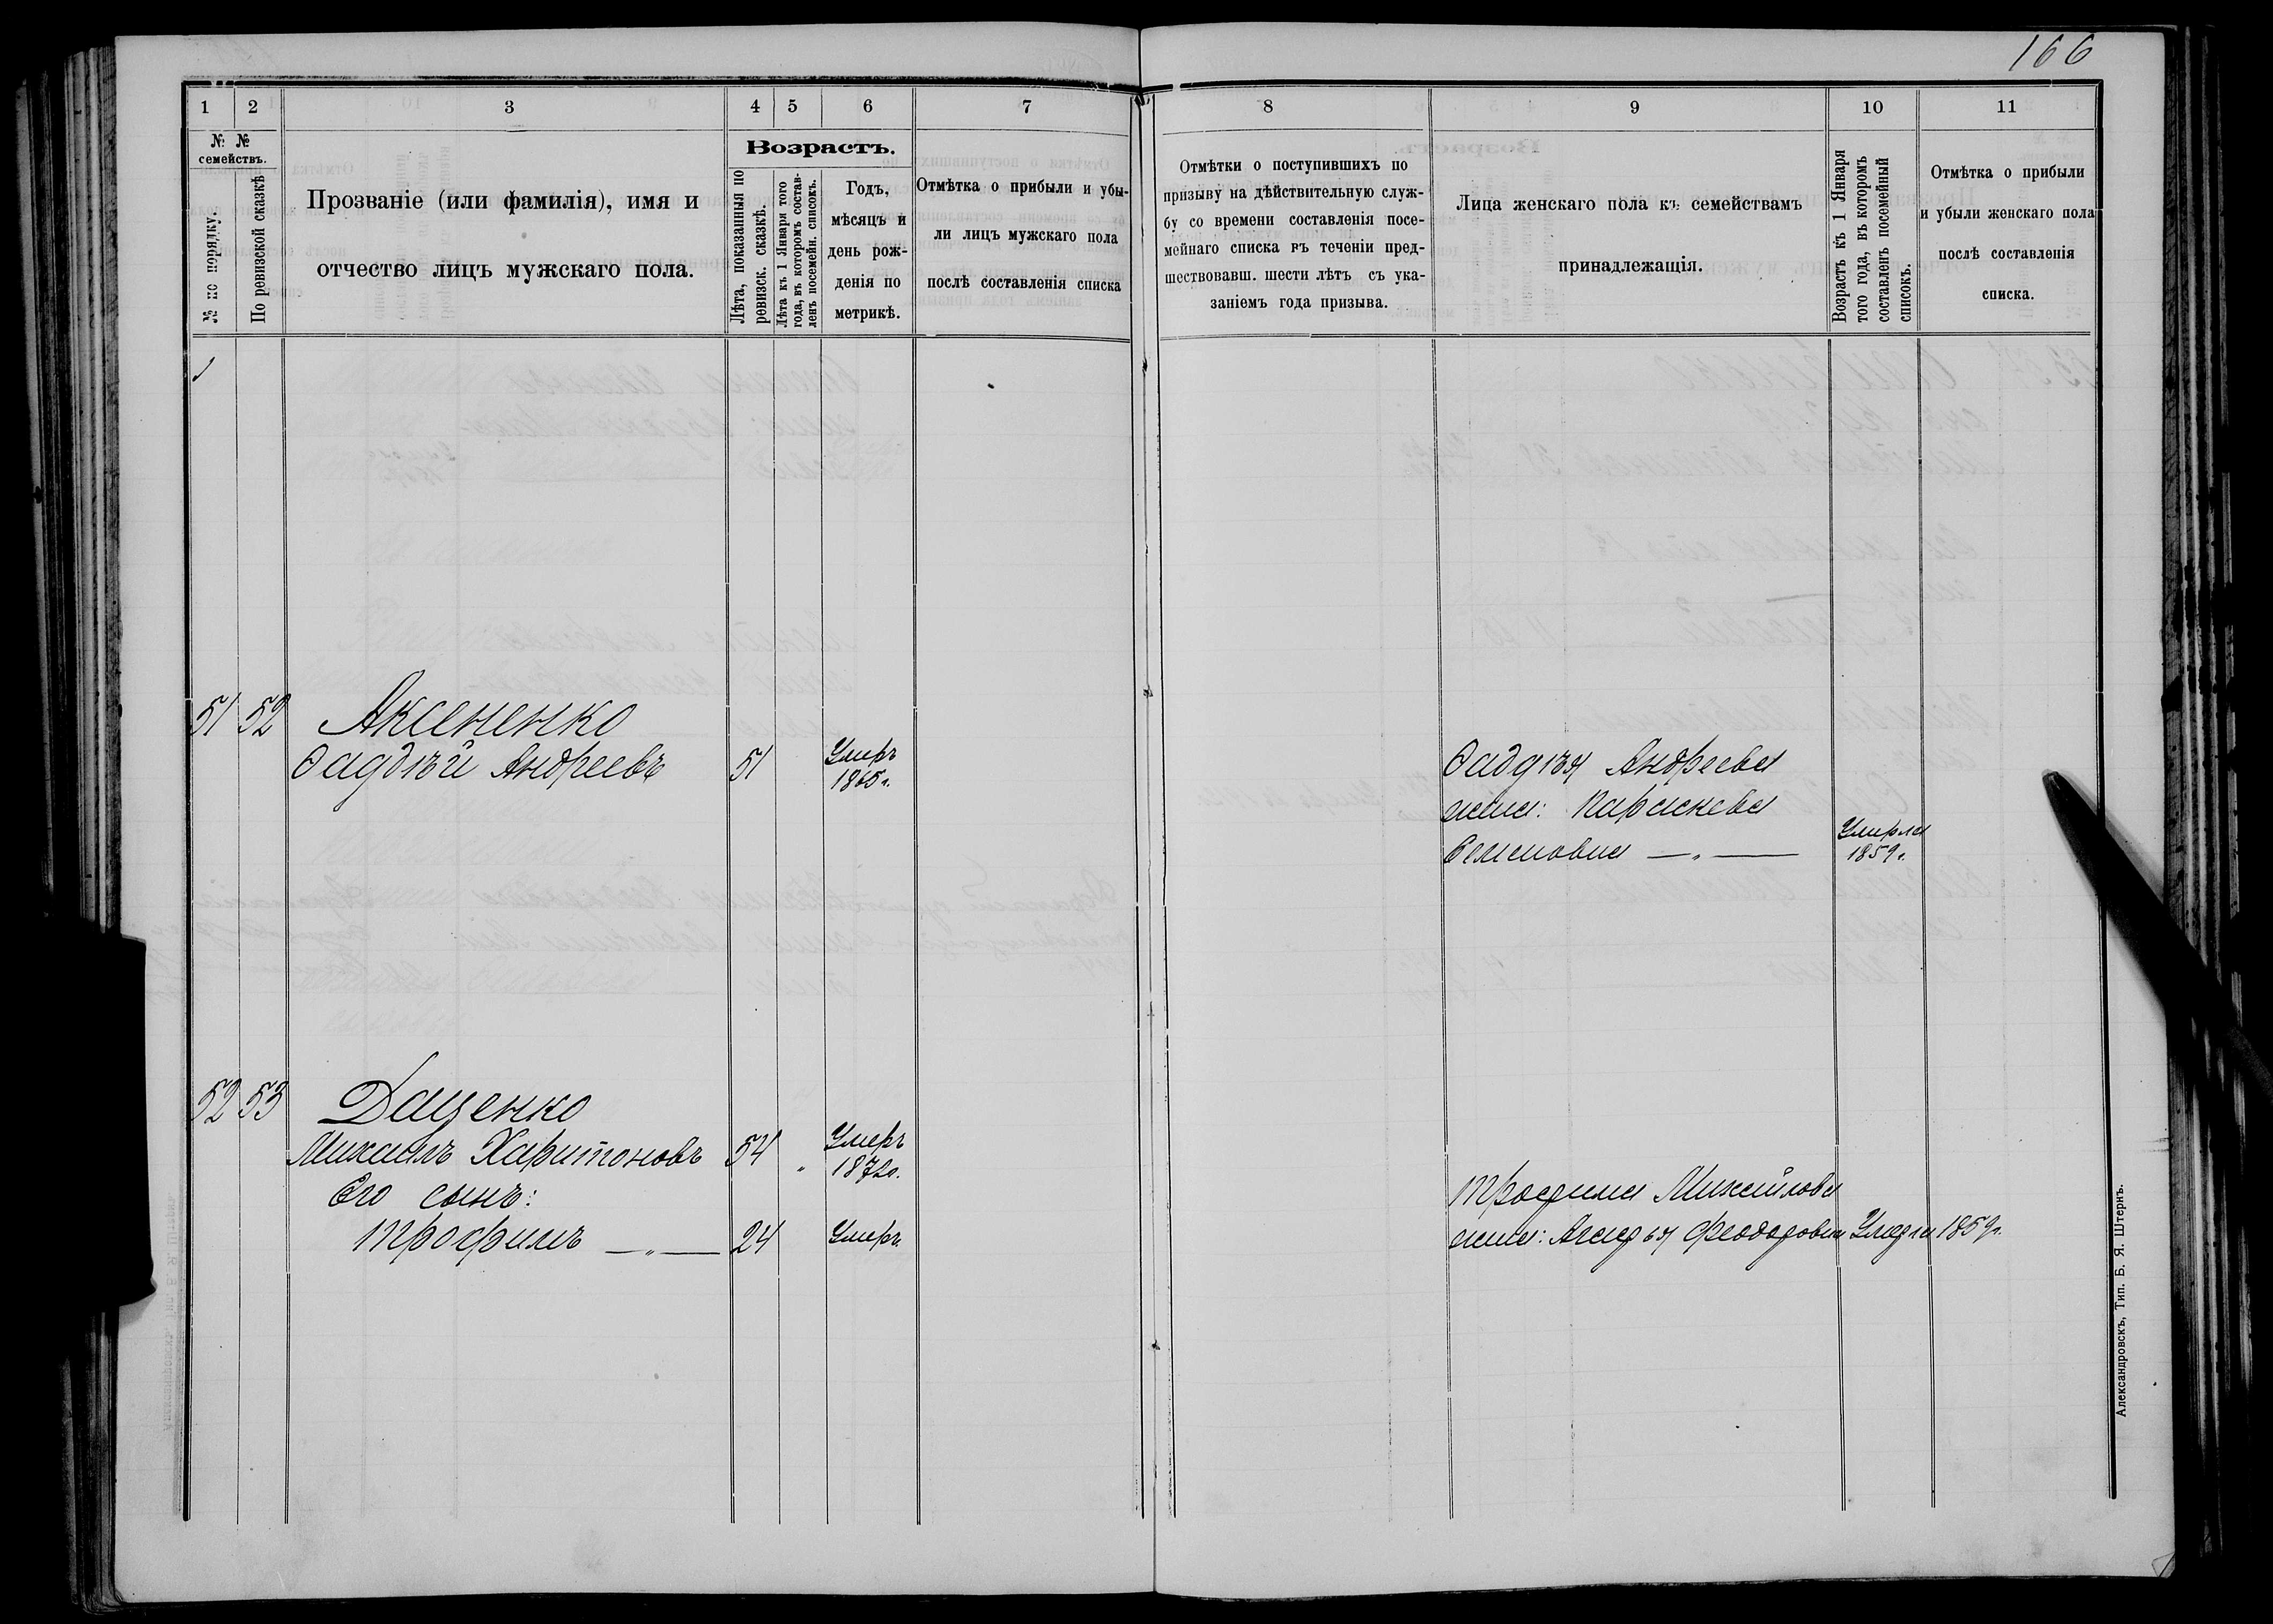 166
1 2 3 4 5 6 7
№ № семействъ.
№ по порядку.
По ревизской сказкѣ
Прозваніе (или фамилія), имя и
отчество лицъ мужскаго пола.
Возрастъ.
Лѣта, показанныя по
ревизск. сказкѣ.
Лѣта къ 1 Января того
года, въ которомъ состав-
ленъ посемейн. списокъ.
Годъ,
мѣсяцъ и
день рож-
денія по
метрикѣ.
Отмѣтка о прибыли и убы-
ли лицъ мужскаго пола
послѣ составленія списка
8 9 10 11
Отмѣтки о поступившихъ по
призыву на дѣйствительную служ-
бу со времени составленія посе-
мейнаго списка въ теченіи пред-
шествовавш. шести лѣтъ съ ука-
заніемъ года призыва.
Лица женскаго пола къ семействамъ
принадлежащія.
Возрастъ къ 1 Января
того года, въ которомъ
составленъ посемейный
списокъ.
Отмѣтка о прибыли
и убыли женскаго пола
послѣ составленія
списка.
51 52 Аксененко
Ѳаддѣй Андреевъ 51 Умеръ
1865 г.
Ѳаддѣя Андреева
жена: Параскева
Семеновна — „ — Умерла
1859 г.
52 53 Даценко
Михаилъ Харитоновъ 54 „ Умеръ
1872 г.
Его сынъ:
Трофимъ — „ — 24 Умеръ
Трофима Михайлова
жена: Агафья Феодоровна Умерла 1859 г.
Александровскъ, Тип. Б. Я. Штернъ.